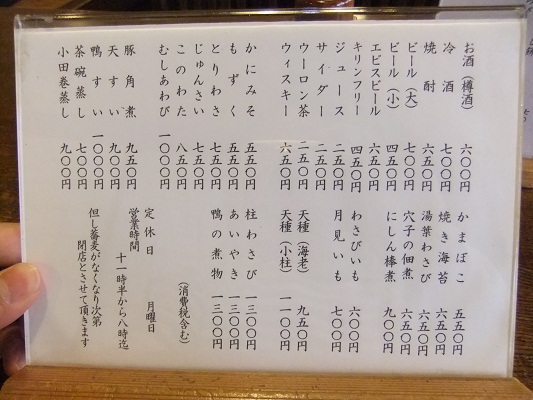 お酒（樽酒） 六〇〇円
冷酒 七〇〇円
焼酎 六五〇円
ビール（大） 七〇〇円
ビール（小） 四五〇円
エビスビール 六五〇円
キリンフリー 四五〇円
ジュース 二五〇円
サイダー 二五〇円
ウーロン茶 二五〇円
ウィスキー 六五〇円
かにみそ 五五〇円
もずく 五五〇円
とりわさ 七五〇円
じゅんさい 七五〇円
このわた 八五〇円
むしあわび 一〇〇〇円
豚角煮 九五〇円
天すい 九〇〇円
鴨すい 一〇〇〇円
茶碗蒸し 七〇〇円
小田巻蒸し 九〇〇円
かまぼこ 五五〇円
焼き海苔 六五〇円
湯葉わさび 六五〇円
穴子の佃煮 六五〇円
にしん棒煮 九〇〇円
わさびいも 六〇〇円
月見いも 七〇〇円
天種（海老） 九五〇円
天種（小柱） 一一〇〇円
柱わさび 一三〇〇円
あいやき 一三〇〇円
鴨の煮物 一三〇〇円
（消費税含む）
定休日 月曜日
営業時間 十一時半から八時迄
但し蕎麦がなくなり次第
閉店とさせて頂きます